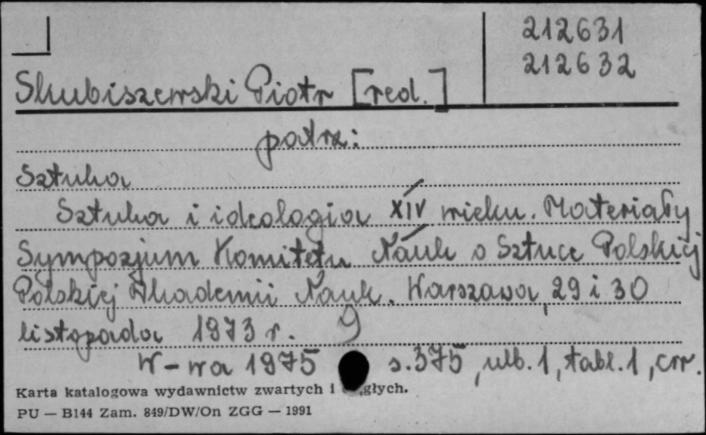 212631
212632
Skubiszewski Piotr [red.]
patrz:
Sztuka
Sztuka i ideologia XIV wieku. Materiały
Sympozjum Komitetu Nauk o Sztuce Polskiej
Polskiej Akademii Nauk. Warszawa, 29 i 30
listopada 1973 r. 9
W-wa 1975 s. 375, nlb. 1, tabl. 1, err.
Karta katalogowa wydawnictw zwartych i głych.
PU — B144 Zam. 849/DW/On ZGG — 1991